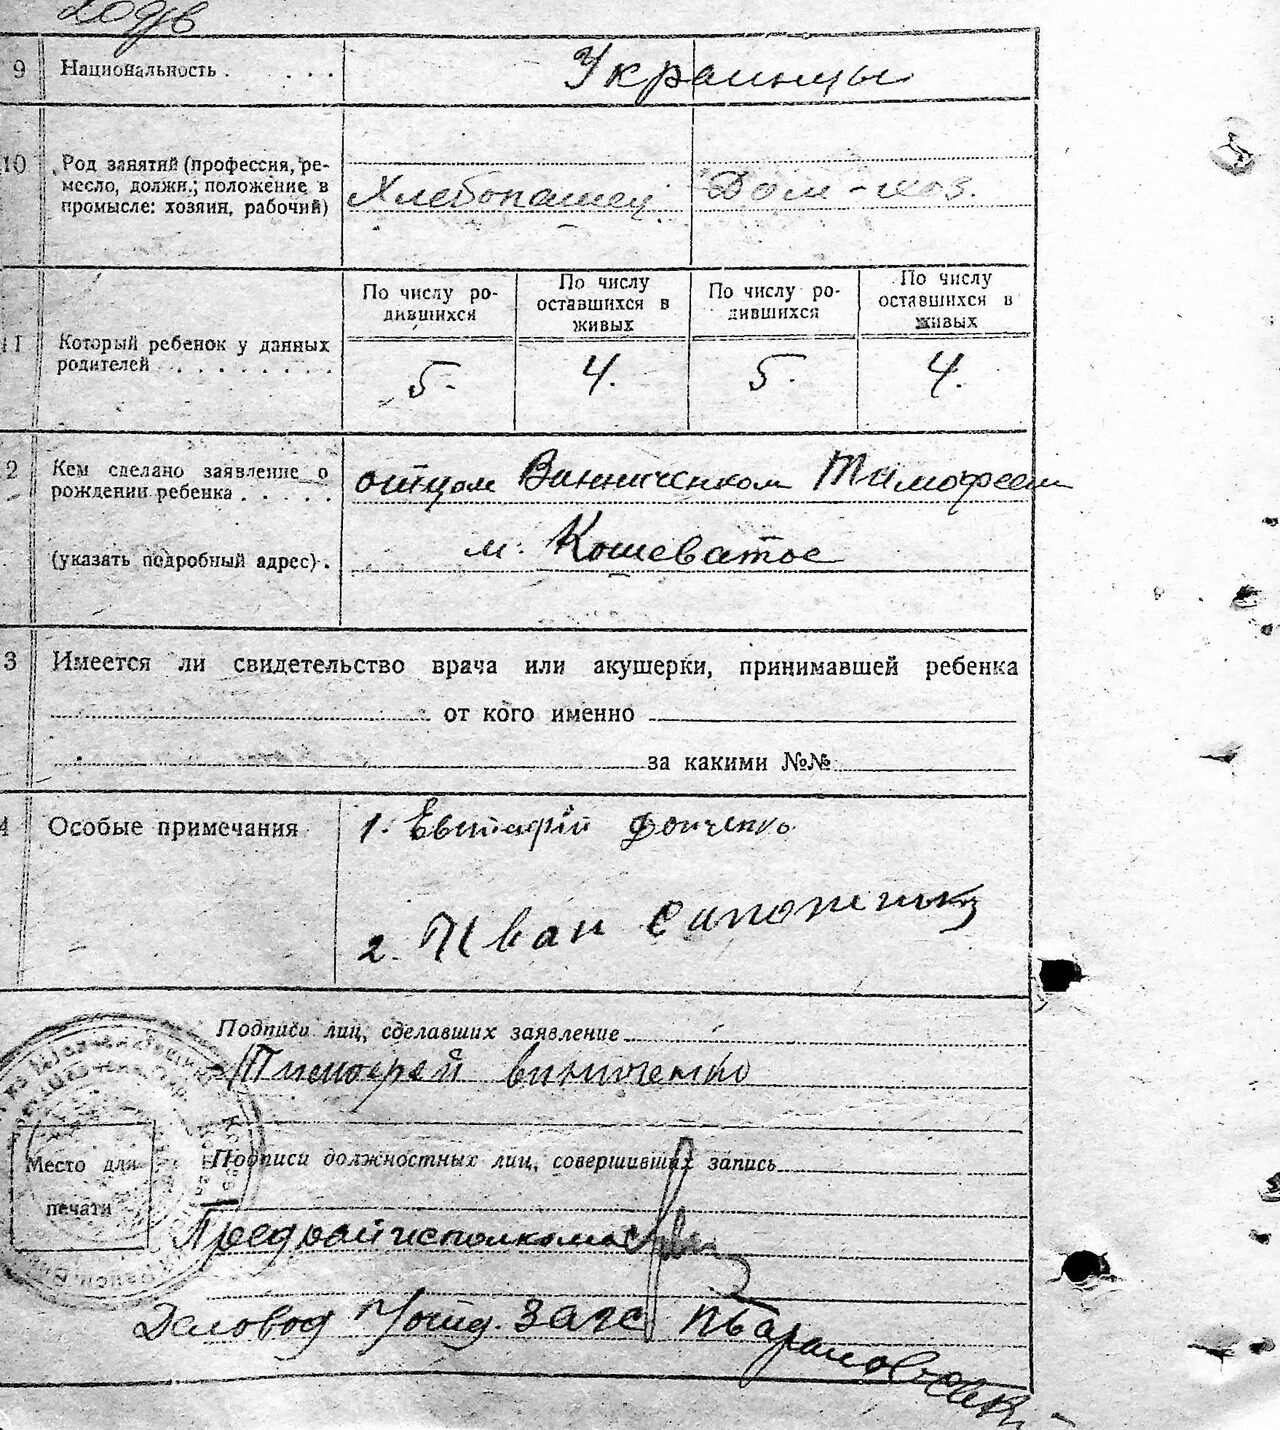 9 Национальность . . . . . Украинцы
10 Род занятий (профессия, ре-
месло, должн.; положение в
промысле: хозяин, рабочий) Хлебопашец Дом-хоз.
По числу ро-
дившихся
По числу
оставшихся в
живых
По числу ро-
дившихся
По числу
оставшихся в
живых
11 Который ребенок у данных
родителей . . . . . . . . 5. 4. 5. 4.
2 Кем сделано заявление о
рождении ребенка . . . . . отцом Винниченком Тимофеем
(указать подробный адрес) . м. Кошеватое
3 Имеется ли свидетельство врача или акушерки, принимавшей ребенка
от кого именно
за какими №№
4 Особые примечания 1.
2. Иван
Подписи лиц, сделавших заявление
Тимофей Виниченко
Место для
печати
Подписи должностных лиц, совершивших запись
Предрайисполкома
Деловод ЗАГС